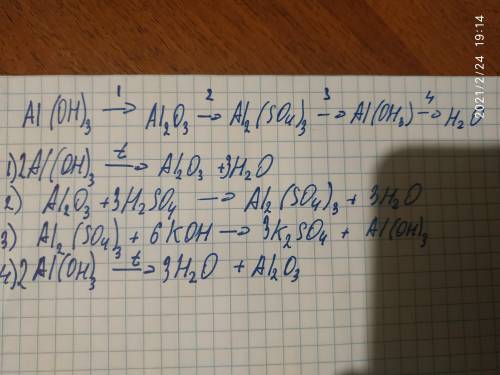 Al(OH)₃ →¹ Al₂O₃ →² Al₂(SO₄)₃ →³ Al(OH₃) →⁴ H₂O
1) 2Al(OH)₃ →ᵗ Al₂O₃ + 3H₂O
2) Al₂O₃ + 3H₂SO₄ → Al₂(SO₄)₃ + 3H₂O
3) Al₂(SO₄)₃ + 6KOH → 3K₂SO₄ + Al(OH)₃
4) 2Al(OH)₃ →ᵗ 3H₂O + Al₂O₃
2021/2/24 19:14